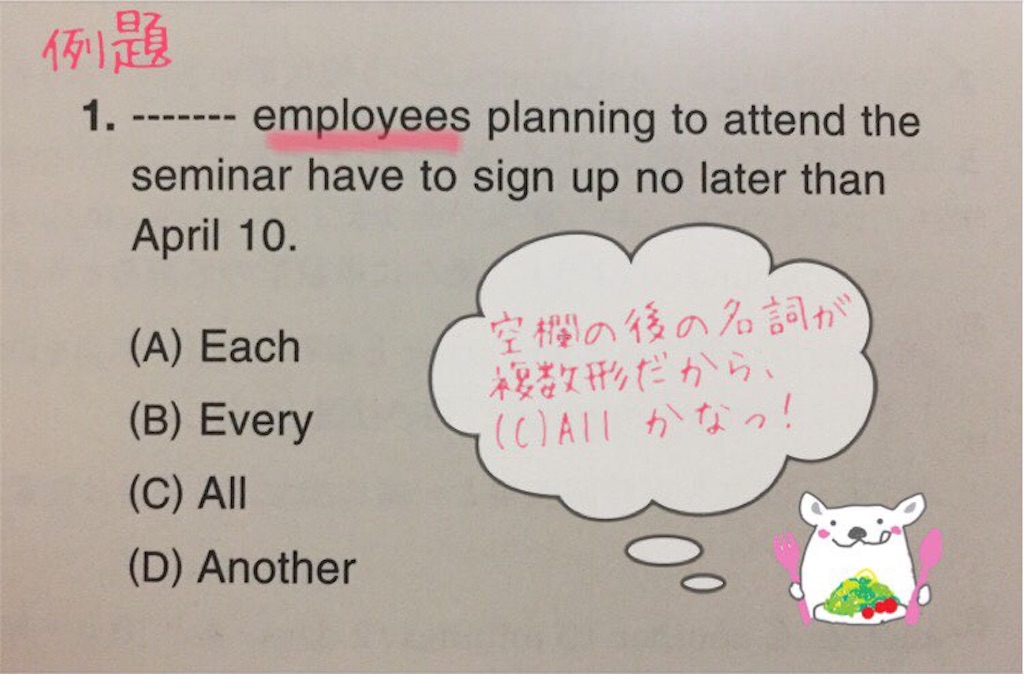 例題
1. ------- employees planning to attend the
seminar have to sign up no later than
April 10.
(A) Each
(B) Every
(C) All
(D) Another
空欄の後の名詞が
複数形だから、
(C)All かなっ!